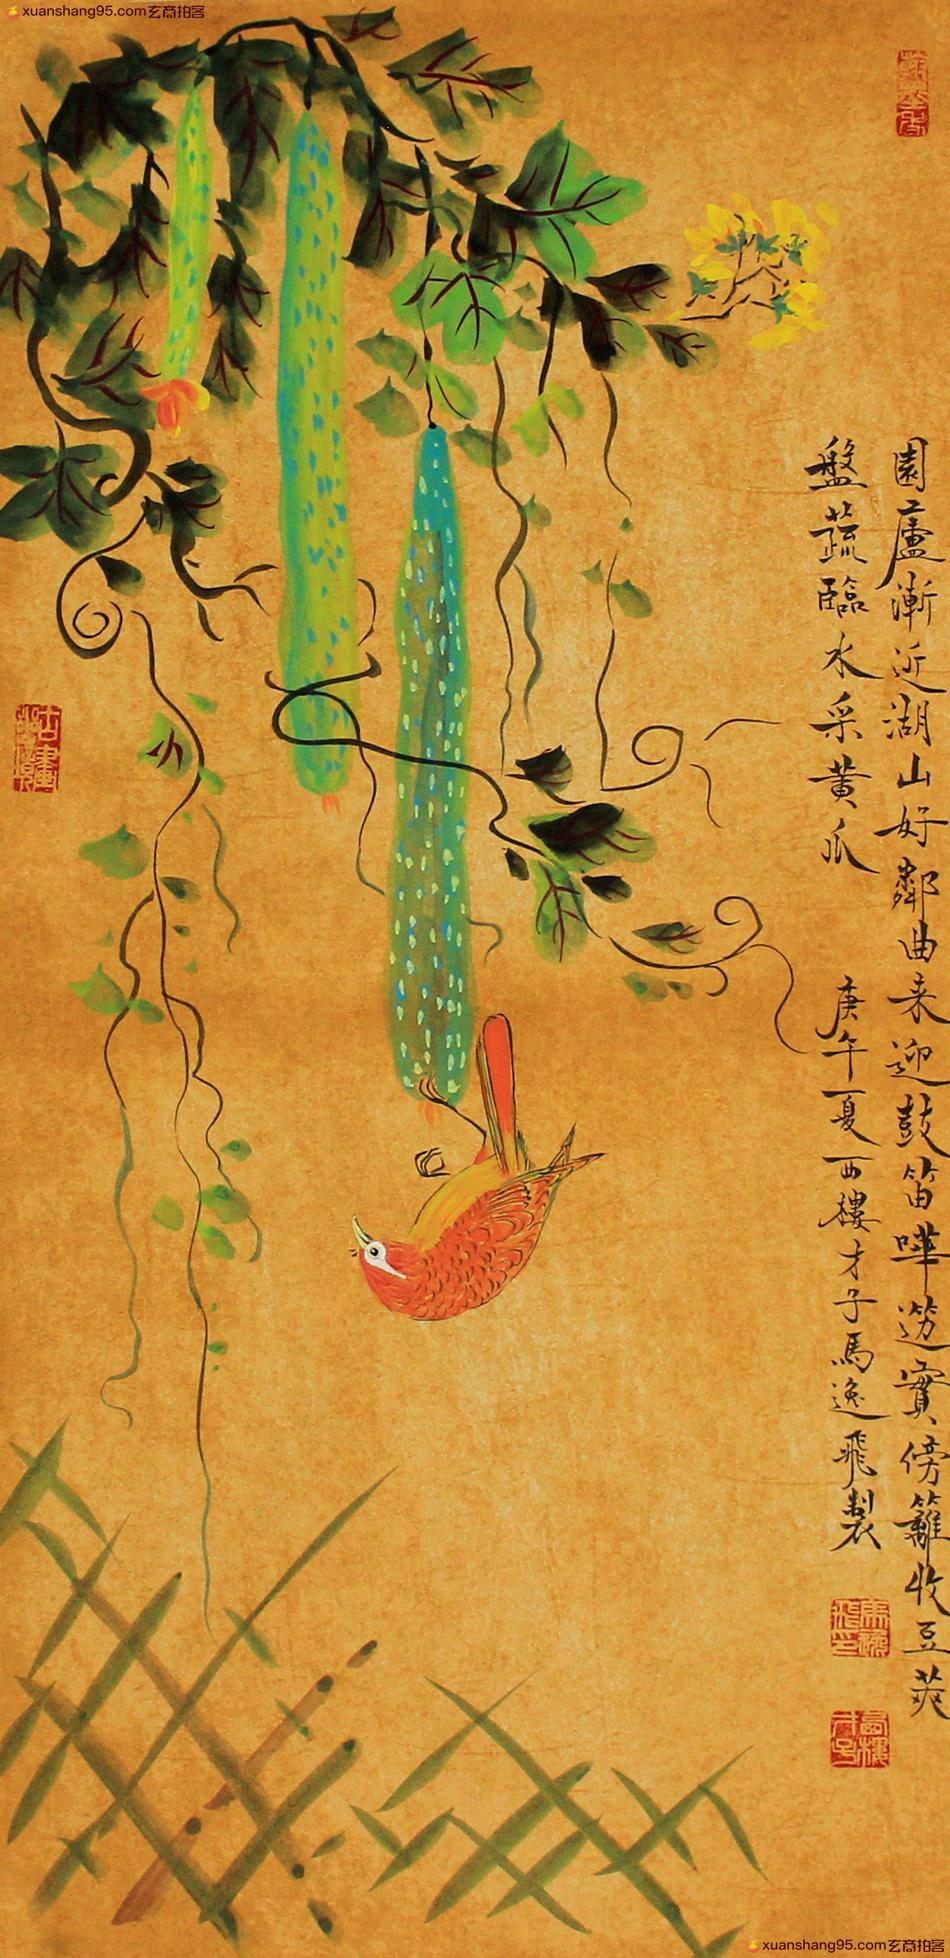 xuanshang95.com玄商拍客
園廬漸近湖山好鄰曲来迎鼓笛嘩遶實傍籬收豆莢
盤蔬臨水采黄瓜
庚午夏西樓才子馬逸飛製
xuanshang95.com玄商拍客